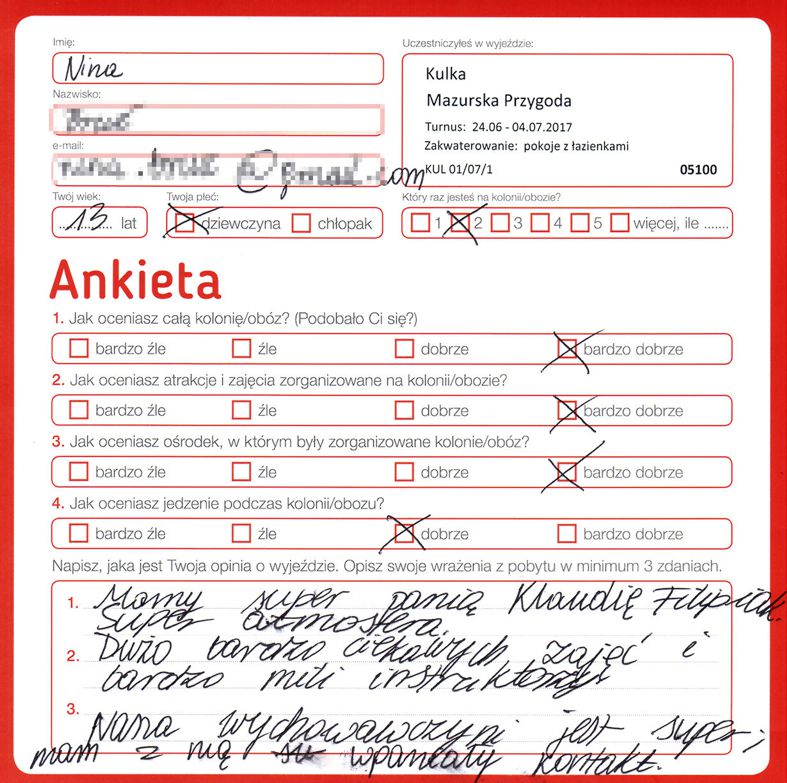 Imię:
Nina
Nazwisko:
e-mail:
Uczestniczyłeś w wyjeździe:
Kulka
Mazurska Przygoda
Turnus: 24.06 - 04.07.2017
Zakwaterowanie: pokoje z łazienkami
KUL 01/07/1 05100
Twój wiek:
13 lat
Twoja płeć:
dziewczyna chłopak
Który raz jesteś na kolonii/obozie?
1 2 3 4 5 więcej, ile .......
Ankieta
1. Jak oceniasz całą kolonię/obóz? (Podobało Ci się?)
bardzo źle źle dobrze bardzo dobrze
2. Jak oceniasz atrakcje i zajęcia zorganizowane na kolonii/obozie?
bardzo źle źle dobrze bardzo dobrze
3. Jak oceniasz ośrodek, w którym były zorganizowane kolonie/obóz?
bardzo źle źle dobrze bardzo dobrze
4. Jak oceniasz jedzenie podczas kolonii/obozu?
bardzo źle źle dobrze bardzo dobrze
Napisz, jaka jest Twoja opinia o wyjeździe. Opisz swoje wrażenia z pobytu w minimum 3 zdaniach.
1. Mamy super panią Klaudię Filipiak.
Super atmosfera.
2. Dużo bardzo ciekawych zajęć i
bardzo mili instruktorzy
3. Nasza wychowawczyni jest super,
mam z nią wpaniały kontakt.